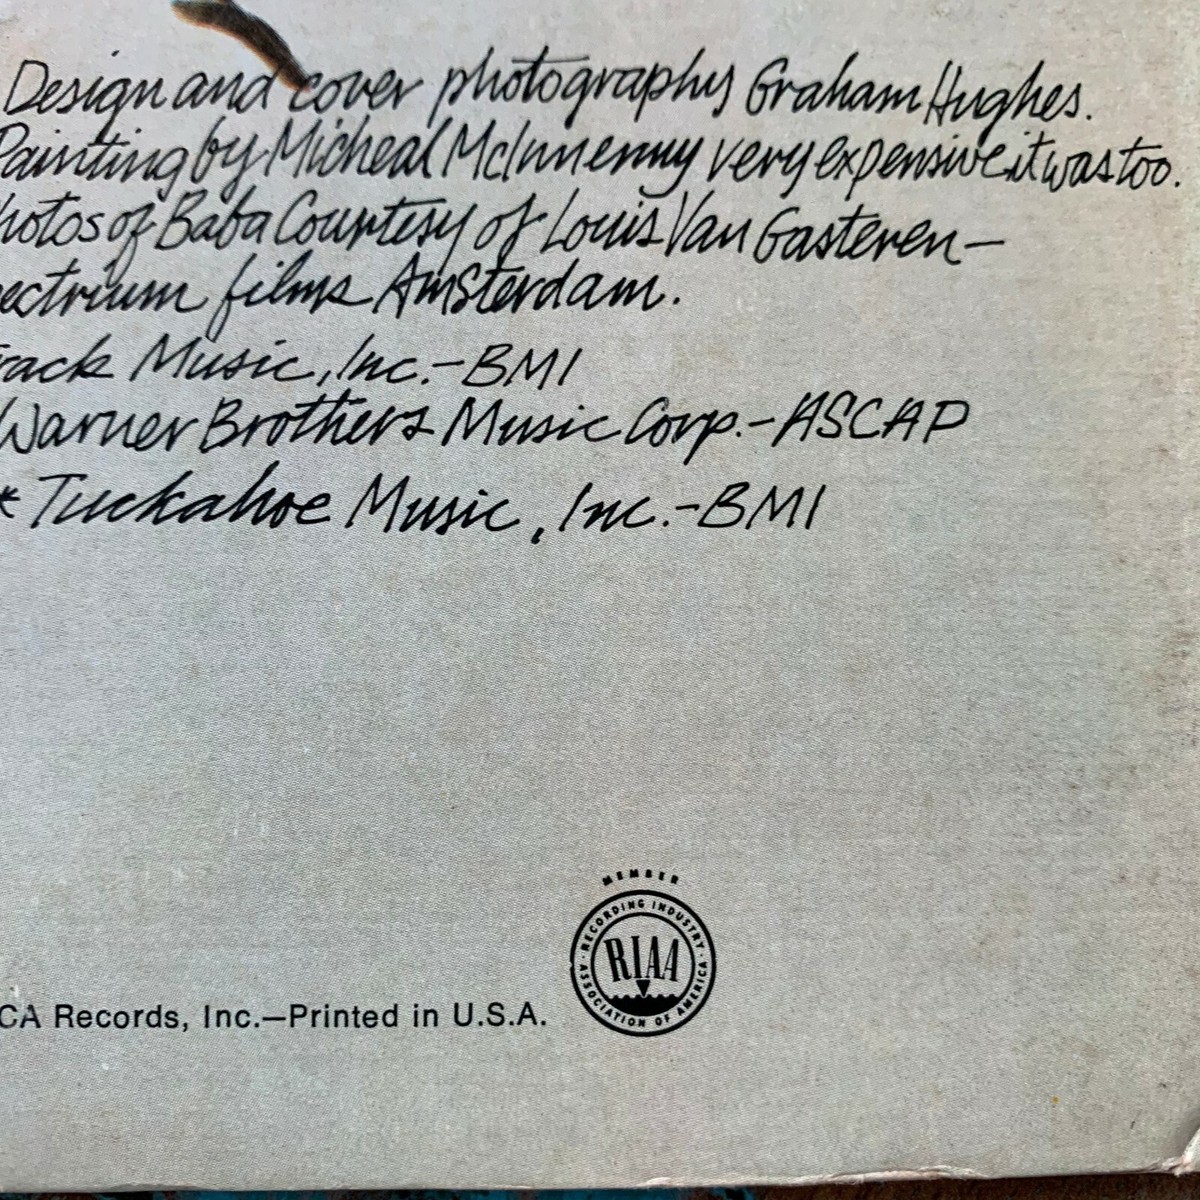 Design and cover photographs Graham Hughes.
Painting by Micheal McInnenny very expensive it was too.
hotos of Baba Courtesy of Louis Van Gasteren—
ectrium films Amsterdam.
rack Music, Inc.-BMI
Warner Brothers Music Corp.-ASCAP
* Tuckahoe Music, Inc.-BMI
MEMBER
RECORDING INDUSTRY
RIAA
ASSOCIATION OF AMERICA
CA Records, Inc.—Printed in U.S.A.